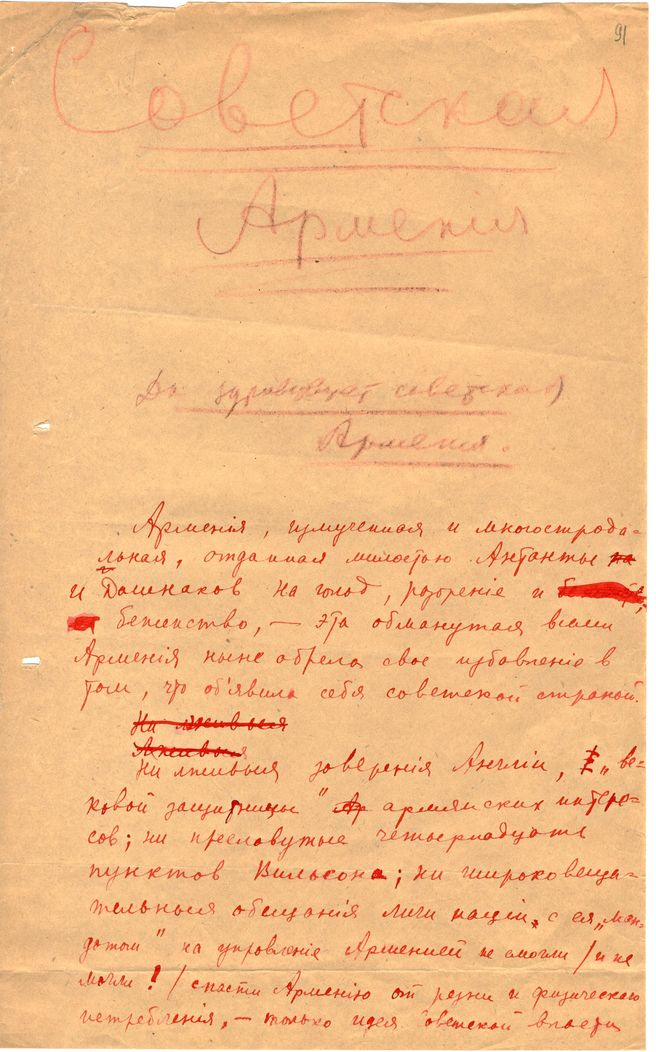 91
Советская
Арменія
Да здравствует советская
Армения.
Арменія, измученная и многострода-
льная, отданная милостью Антанты на
и Дашнаков на голод, разореніе и
бегенство, — эта обманутая всеми
Арменія ныне обрела свое избавленіе в
том, что об'явила себя советской страной.
Ни лживыя
Лживыя
Ни лживыя заверенія Англіи, „ве-
ковой защитницы" Ар армянских интере-
сов; ни пресловутые четырнадцать
пунктов Вильсона; ни широковеща-
тельныя обещанія лиги націй с ея „ман-
датом" на управленіе Арменией не смогли /и не
могли!/ спасти Арменію от резни и физического
истребленія, — только идея советской власти